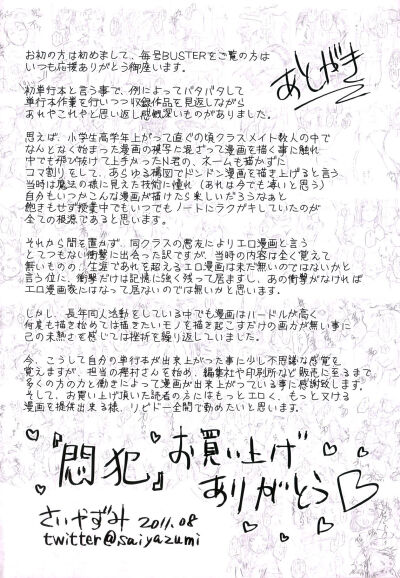 あとがき
お初の方は初めまして、毎号BUSTERをご覧の方は
いつも応援ありがとう御座います。
初単行本と言う事で、例によってバタバタして
単行本作業を行いつつ収録作品を見返しながら
あれやこれやと思い返し感慨深いものがありました。
思えば、小学生高学年上がって直ぐの頃クラスメイト数人の中で
なんとなく始まった漫画の模写に混ざって漫画を描く事に触れ
中でも飛び抜けて上手かったN君の、ネームも描かずに
コマ割りをして、あらゆる構図でドンドン漫画を描き上げると言う
当時は魔法の様に見えた技術に憧れ(あれは今でも凄いと思う)
自分もいつかこんな漫画が描けたら楽しいだろうなぁと
飽きもせず授業中でもいつでもノートにラクガキしていたのが
全ての根源であると思います。
それから間を置かず、同クラスの悪友によりエロ漫画と言う
とてつもない衝撃に出会った訳ですが、当時の内容は全く覚えて
無いものの、生涯であれを超えるエロ漫画は未だ無いのではないかと
言う位に、衝撃だけは記憶に強く残って居ますし、あの衝撃がなければ
エロ漫画家にはなって居ないのでは無いかと思います。
しかし、長年同人活動をしている中でも漫画はハードルが高く
何度も描き始めては描きたいモノを描き起こすだけの画力が無い事に
己の未熟さを感じては挫折を繰り返していました。
今、こうして自分の単行本が出来上がった事に少し不思議な感覚を
覚えますが、担当の樫村さんを始め、編集社や印刷所など販売に至るまで
多くの方の力と働きによって漫画が出来上がっている事に感謝致します。
そして、お買い上げ頂いた読者の方にはもっとエロく、もっとヌける
漫画を提供出来る様、リビドー全開で勤めたいと思います。
『悶犯』お買い上げ
ありがとう
さいやずみ 2011.08
twitter@saiyazumi